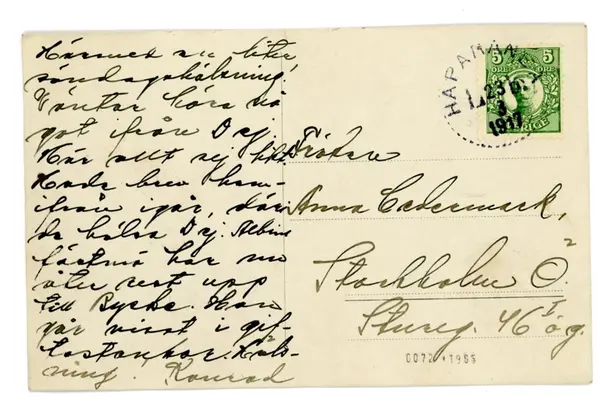 Härmed en liten
söndagshälsning!
Väntar höra nå
got ifrån Dej.
Här allt sej likt
Hade brev hem-
ifrån igår, där
de hälsa Dej. Albins
fästmö har nu
åter rest upp
till Han
går visst i gif-
tastankar. Häls-
ning. Konrad
HAPARANDA
23
3
1917
5 5
ÖRE ÖRE
SVERIGE
Fröken
Anna Cedermark,
Stockholm Ö.
2
Stureg. 46 I ö.g.
0072 *1955